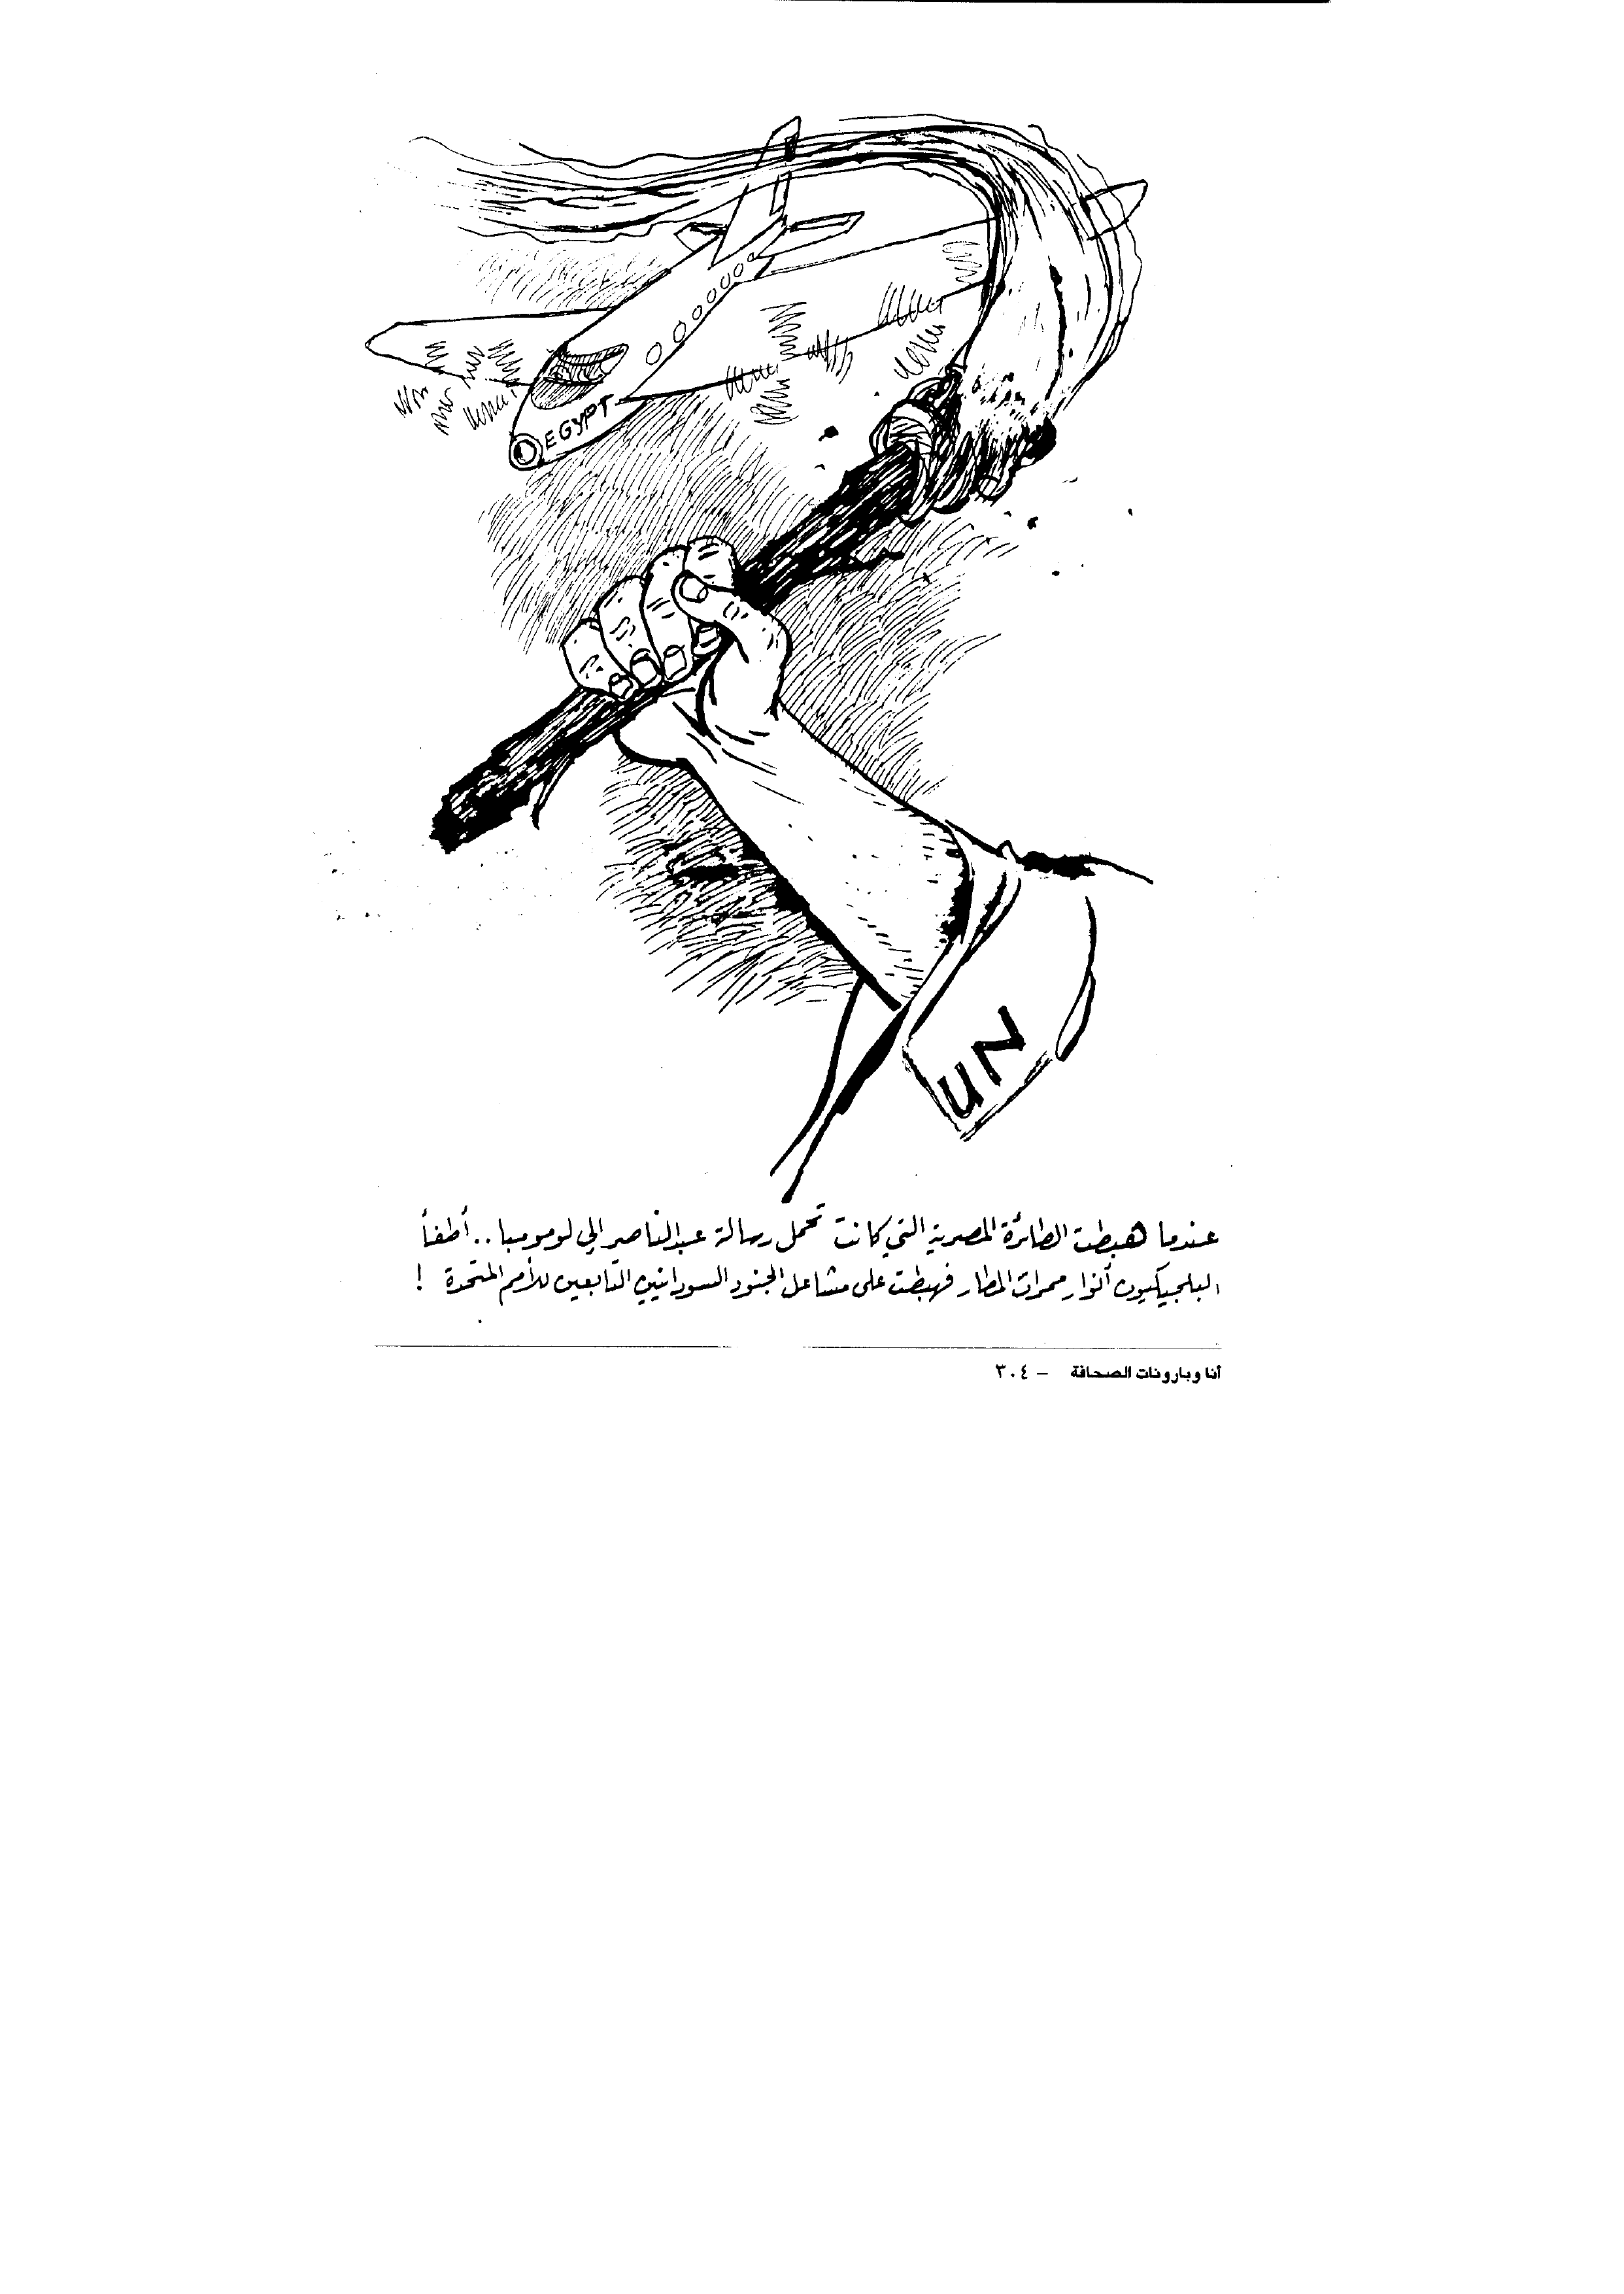 EGYPT
UN
عندما هبطت الطائرة المصرية التي كانت تحمل رسالة عبدالناصر إلي لومومبا .. أطفأ
البلجيكيون أنوار ممرات المطار فهبطت على مشاعل الجنود السودانيين التابعين للأمم المتحدة !
أنا وبارونات الصحافة - ٣٠٤